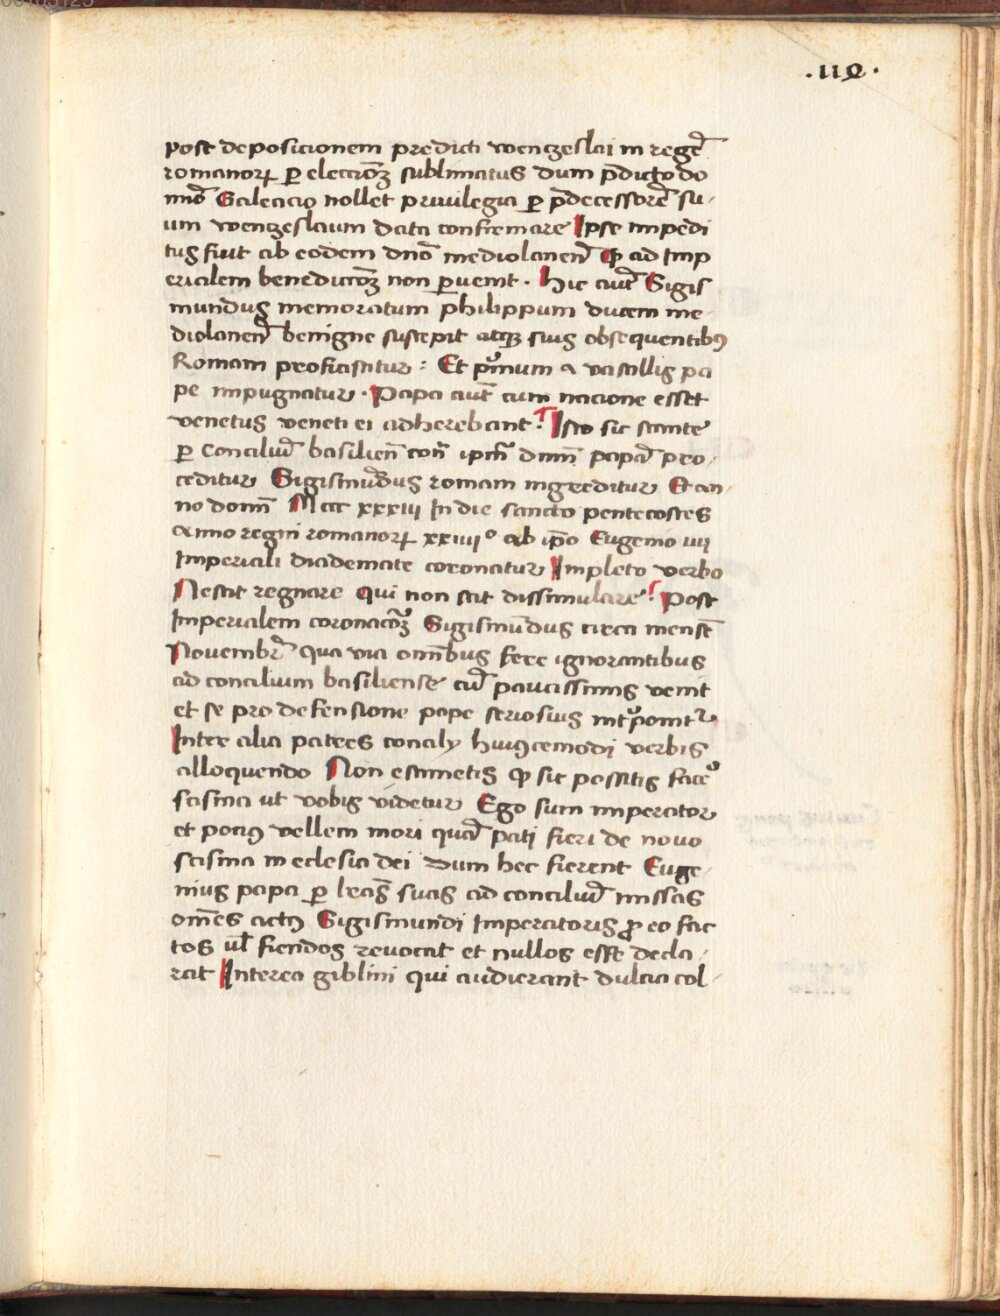 ·112·
post deposicionem predicti wenczeslai in regẽ
romanoꝝ ꝑ electiõꝫ sublimatus dum p̃dicto do
mio͂ Galeacio nollet priuilegia ꝑ p̃decessorẽ su-
um wenczeslaum data confirmare Ipse impedi
tus fuit ab eodem dño mediolaneñ ꝙ ad Imp
erialem benedictõꝫ non ꝑuenit · hic aut̃ Sigis
mundus memoratum philippum ducem me-
diolaneñ benigne suscepit atqꝫ suis obsequentibꝯ
Romam proficiscitur : Et pͥmum a vasallis pa
pe impugnatur · Papa aut̃ cum nacione esset
venetus veneti ei adherebant · Isto sic stante
ꝑ conciliũ basilien̄ con̄ ip̄m dnm̄ papã pro-
ceditur Sigismũdus romam ingreditur Et an-
no domī Mccc xxxiii In die sancto pentecostes
Anno regni romanoꝝ xxiiii° ab ip̄o Eugenio iiij
Imperiali diademate coronatur Impleto verbo
Nescit regnare Qui non scit dissimulare · Post
Imperialem coronacõꝫ Sigismũdus circa mensẽ
Nouembr̃ qua via om̃ibus fere ignorantibus
ad concilium basiliense cũ paucissimis venit
et se pro defensione pape seriosius int̾ponit
Inter alia patres concilij huiꝯcemodi verbis
alloquendo Non estimetis ꝙ sic possitis face᷑
scisma ut vobis videtur Ego sum imperator
et pociꝯ vellem mori quã pati fieri de nouo
scisma in eclesia dei Dum hec fierent Euge-
nius papa ꝑ lr̃as suas ad conciliũ missas
om̃es actꝯ Sigismundi Imperatoris ꝓ eo fac
tos ul̃ fiendos reuocat et nullos esse decla-
rat Interea giblini qui audierant dulcia col-